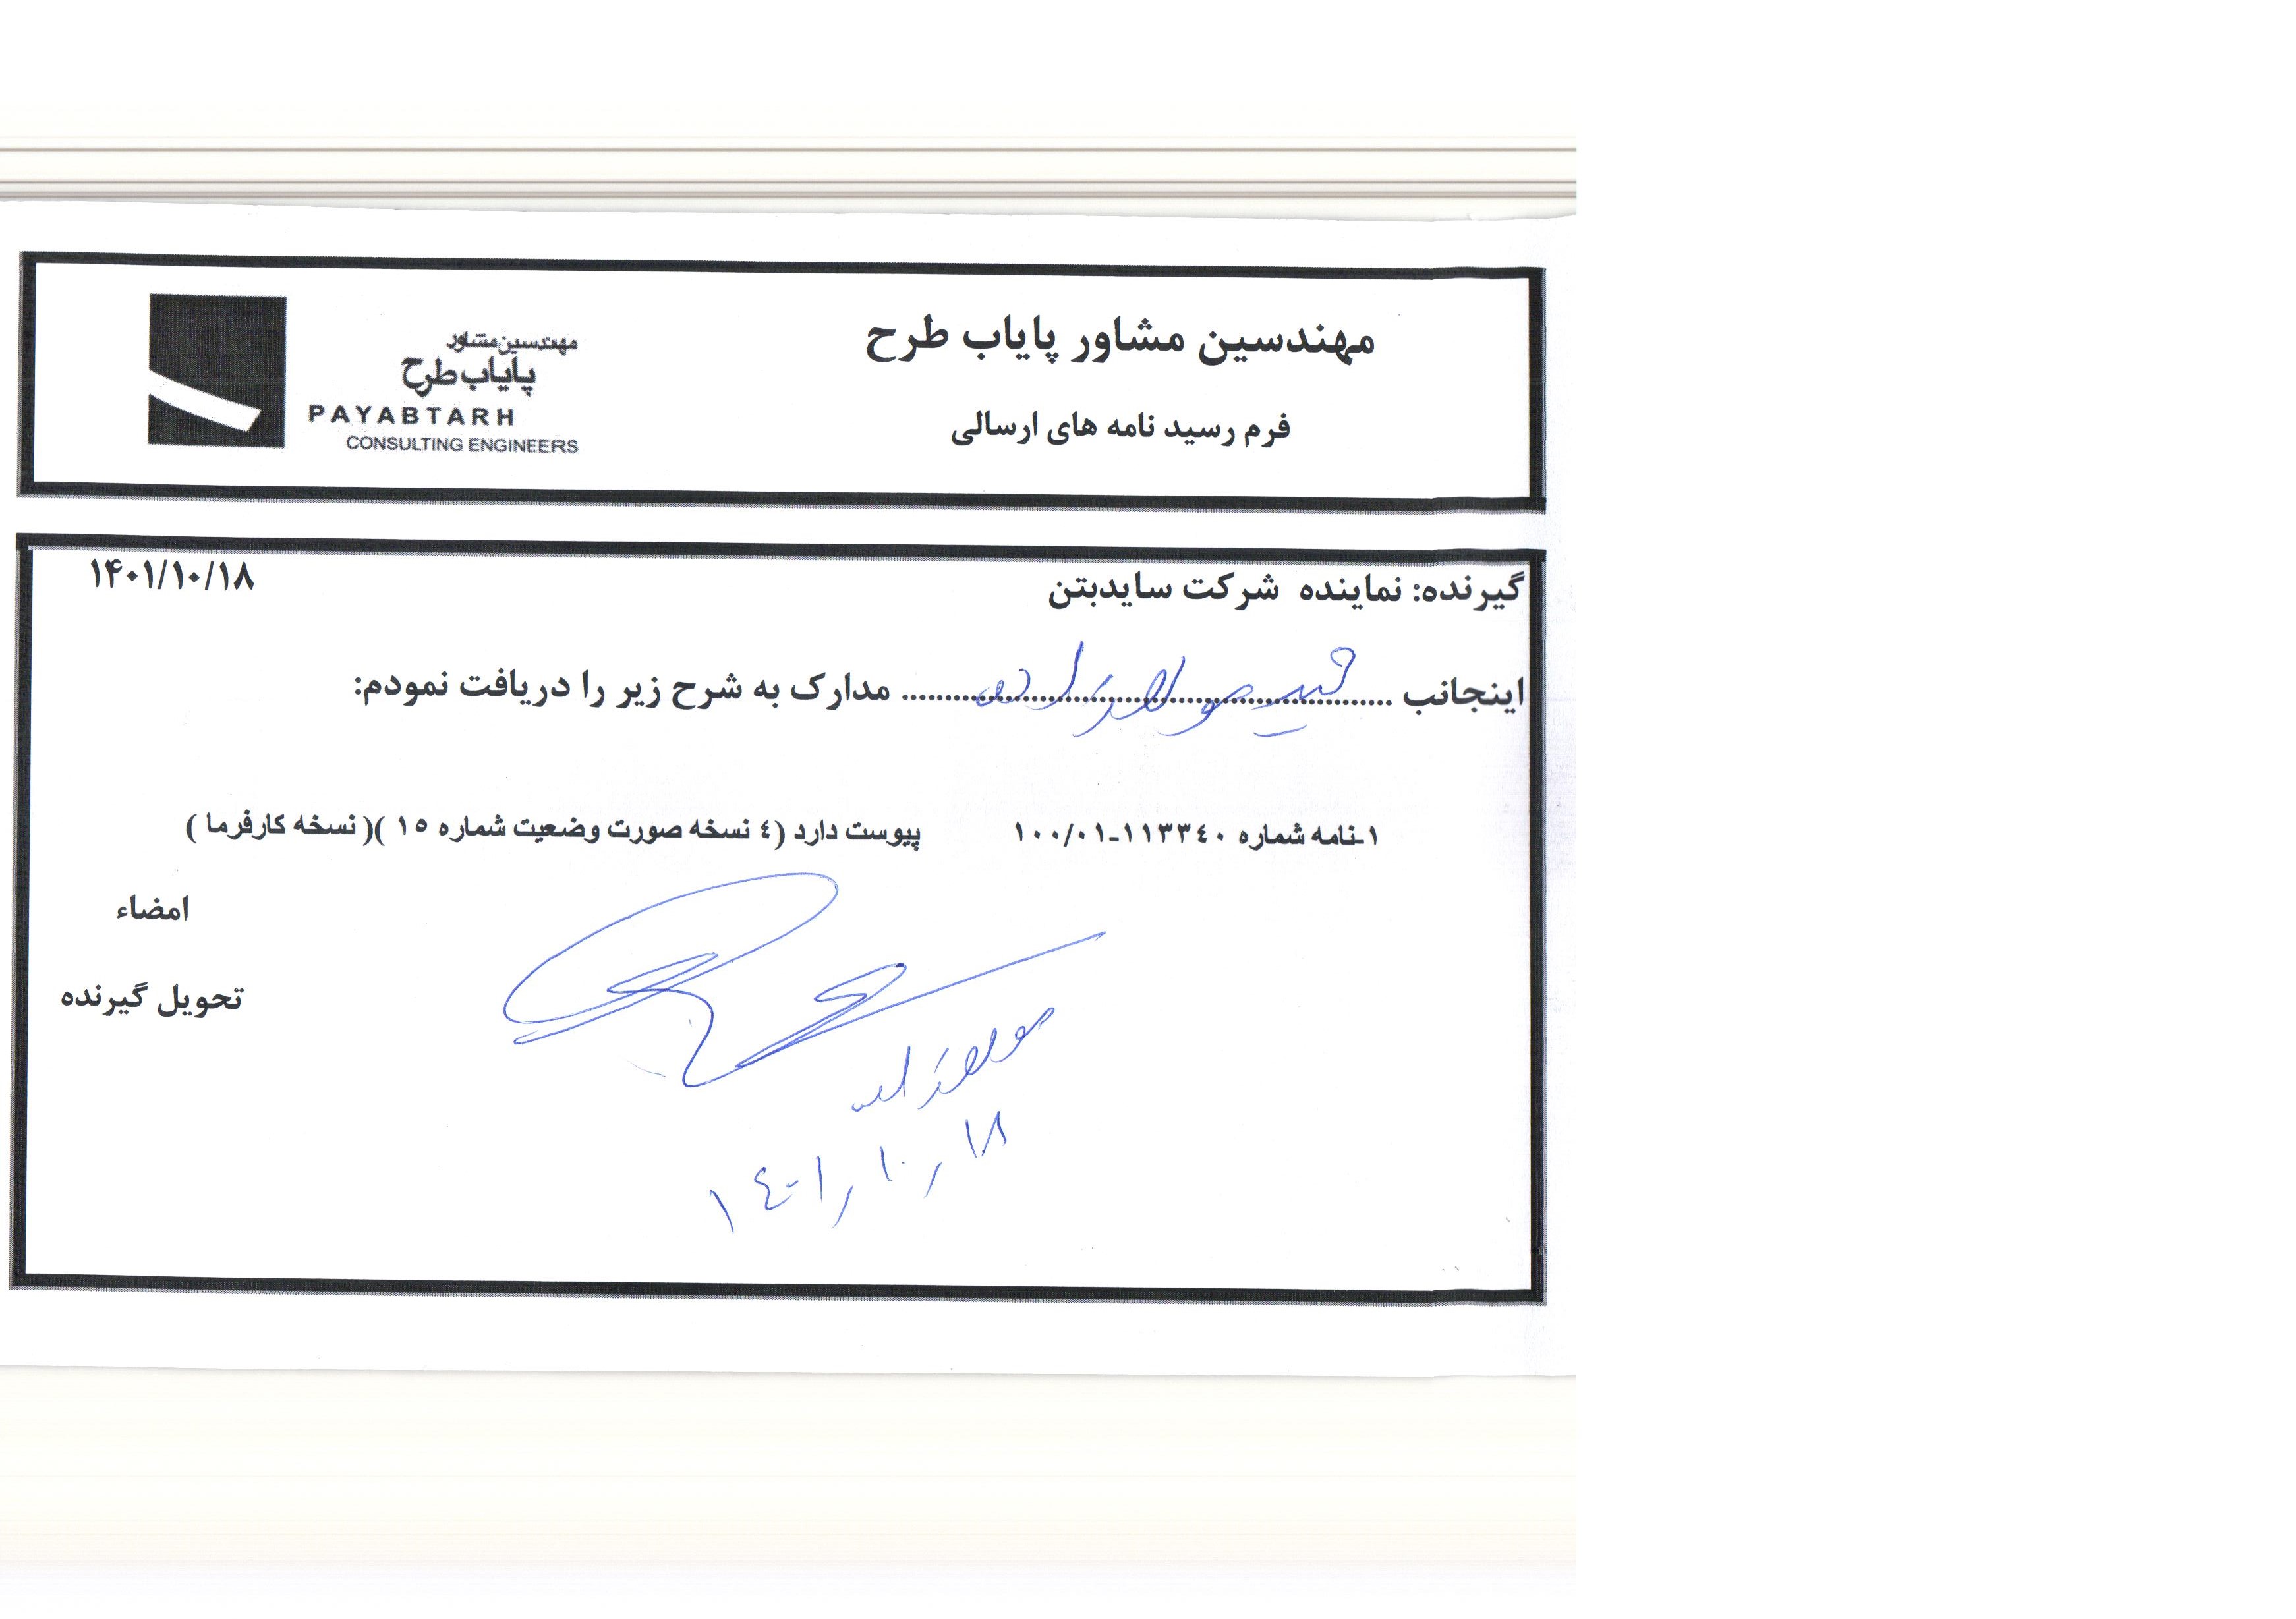 مهندسین مشاور پایاب طرح
فرم رسید نامه های ارسالی
مهندسین مشاور
پایاب طرح
PAYABTARH
CONSULTING ENGINEERS
گیرنده: نماینده شرکت سایدبتن ۱۴۰۱/۱۰/۱۸
اینجانب .......... مدارک به شرح زیر را دریافت نمودم:
۱-نامه شماره ۱۱۳۳٤۰-۱۰۰/۰۱ پیوست دارد (٤ نسخه صورت وضعیت شماره ۱٥ )( نسخه کارفرما )
امضاء
تحویل گیرنده
۱٤۰۱/۱۰/۱۸